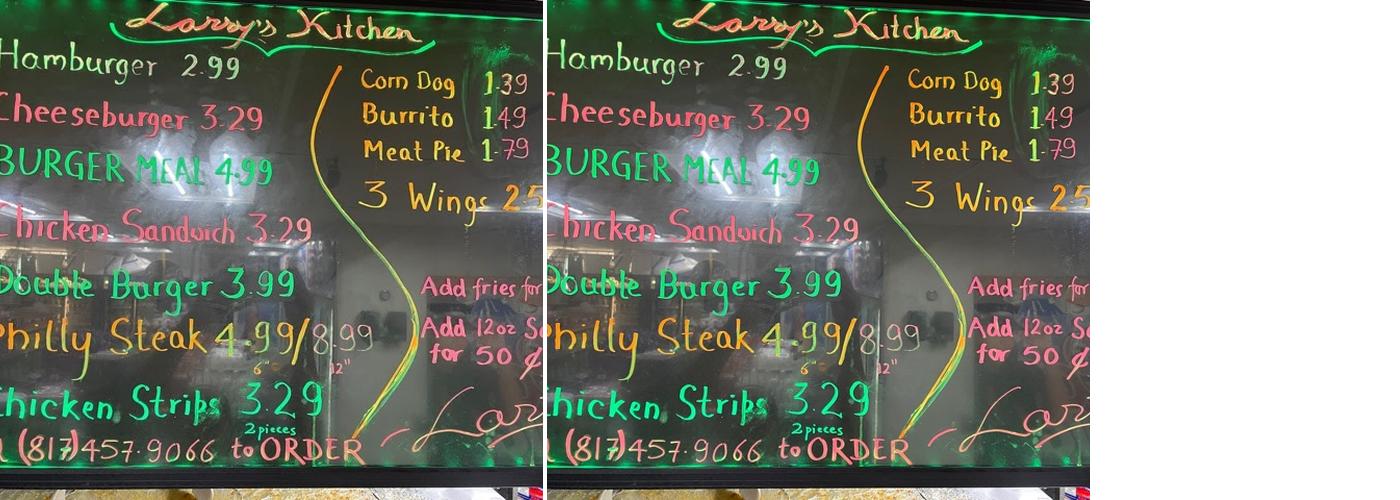 Larry's Kitchen
Hamburger 2.99
Cheeseburger 3.29
BURGER MEAL 4.99
Chicken Sandwich 3.29
Double Burger 3.99
Philly Steak 4.99/8.99
6" 12"
Chicken Strips 3.29
2 pieces
(817)457-9066 to ORDER
Corn Dog 1.39
Burrito 1.49
Meat Pie 1.79
3 Wings 2.5
Add fries for
Add 12oz So
for 50 ¢
Lar
Larry's Kitchen
Hamburger 2.99
Cheeseburger 3.29
BURGER MEAL 4.99
Chicken Sandwich 3.29
Double Burger 3.99
Philly Steak 4.99/8.99
6" 12"
Chicken Strips 3.29
2 pieces
(817)457-9066 to ORDER
Corn Dog 1.39
Burrito 1.49
Meat Pie 1.79
3 Wings 2.5
Add fries for
Add 12oz So
for 50 ¢
Lar